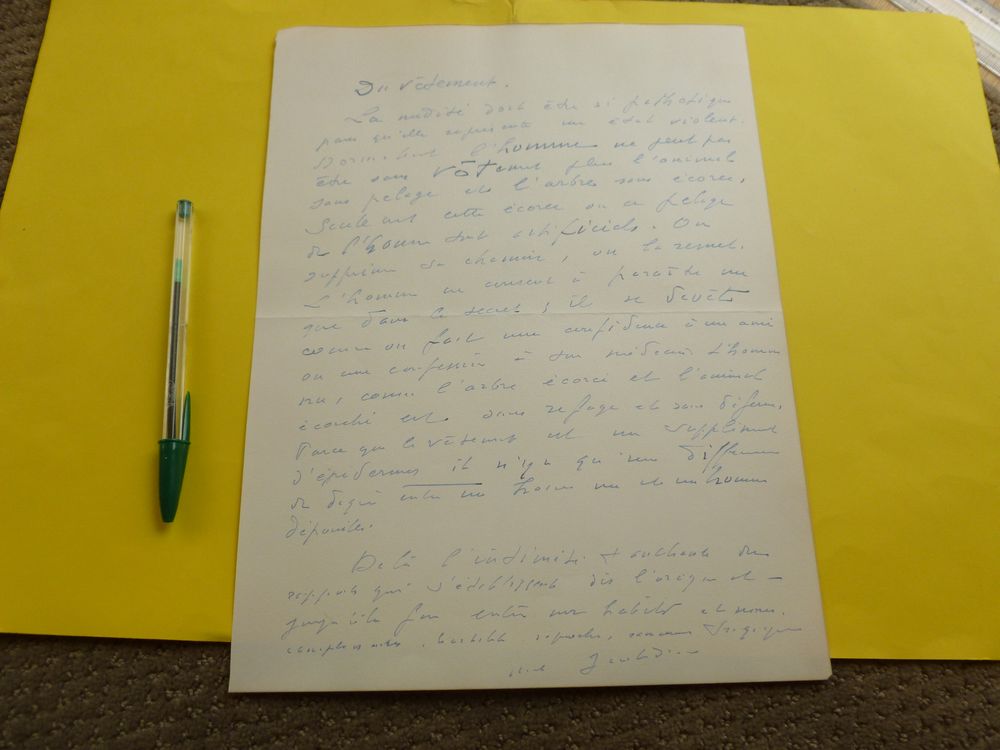 Du vêtement.
La nudité doit être si pathétique
parce qu'elle représente un état violent.
Normalement l'homme ne peut pas
être sans vêtement plus l'animal
sans pelage et l'arbre sans écorce.
Seulement cette écorce ou ce pelage
de l'homme sont artificiels. On
supprime sa chemise, on la remet.
L'homme ne consent à paraître nu
que dans le secret ; il se dévêt
comme on fait une confidence à un ami
ou une confession à son médecin. L'homme
nu, comme l'arbre écorcé et l'animal
écorché est sans refuge et sans défense.
Parce que le vêtement est un supplément
d'épiderme il n'y a qu'une différence
de degré entre un homme nu et un homme
dépouillé.
De là l'intimité
rapports qui s'établissent dès l'origine et
jusqu'à la fin entre nos habits et nous.